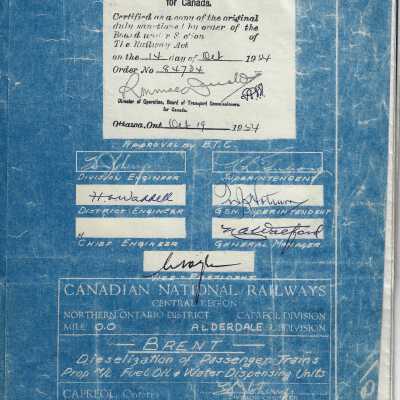 for Canada.
Certified as a copy of the original
duly sanctioned by order of the
Board under Section of
The Railway Act
on the 14 day of Oct 1954
Order No 84734
Director of Operation, Board of Transport Commissioners
for Canada.
Ottawa, Ont Oct 19 1954
APPROVAL BY B.T.C.
DIVISION ENGINEER SUPERINTENDENT
H. Waddell
DISTRICT ENGINEER GEN. SUPERINTENDENT
CHIEF ENGINEER GENERAL MANAGER
VICE-PRESIDENT
CANADIAN NATIONAL RAILWAYS
CENTRAL REGION
NORTHERN ONTARIO DISTRICT CAPREOL DIVISION
MILE 0.0 ALDERDALE SUBDIVISION
BRENT
Dieselization of Passenger Trains
Prop M/L Fuel Oil & Water Dispensing Units
CAPREOL, Ontario